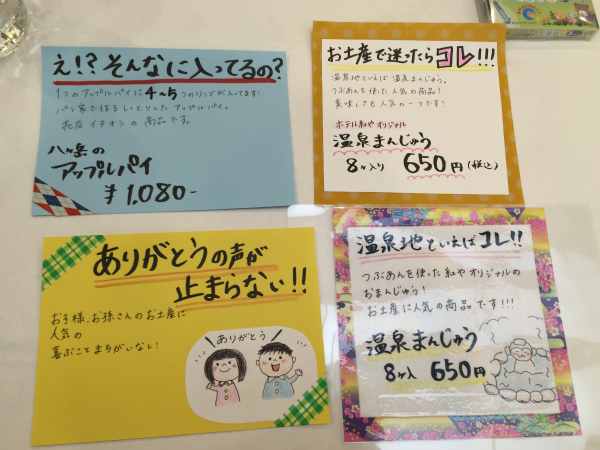 え!?そんなに入ってるの?
1つのアップルパイに4~5つのリンゴが入ってます!
パン家で作るしっとりしたアップルパイ。
売店イチオシの商品です。
八ヶ岳の
アップルパイ
¥1,080-
お土産で迷ったらコレ!!!
温泉地といえば温泉まんじゅう。
つぶあんを使った人気の商品!
美味しさも人気の一つです!
ホテル紅やオリジナル
温泉まんじゅう
8ヶ入り 650円(税込)
ありがとうの声が
止まらない!!
お子様、お孫さんのお土産に
人気の
喜ぶことまちがいなし!
ありがとう
温泉地といえばコレ!!
つぶあんを使った紅やオリジナルの
おまんじゅう!
お土産に人気の商品です!!!
温泉まんじゅう
8ヶ入 650円